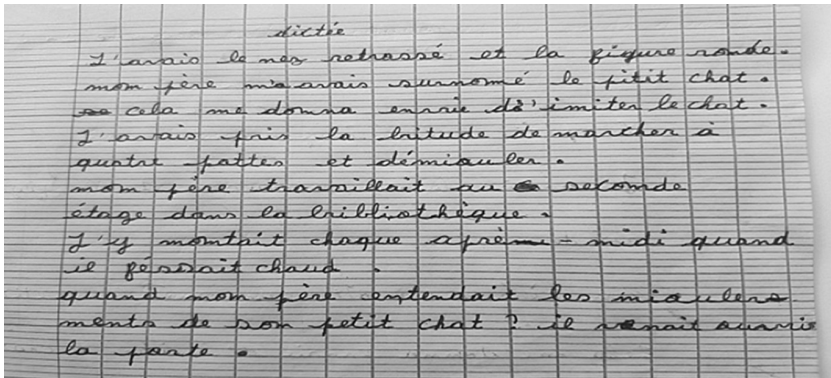 dictée
J'avais le nes retrassé et la figure ronde.
mom père m'a avais surnomé le pitit chat.
cela me donna envie dè'imiter le chat.
J'avais pris la bitude de marcher à
quatre pattes et démiauler.
mom père travaillait au seconde
étage dans la bribliothèque.
J'y momtait chaque aprèm-midi quand
il fésrait chaud.
quand mom père entendait les miaulere
ments de son petit chat ? il venait auvrir
la porte.